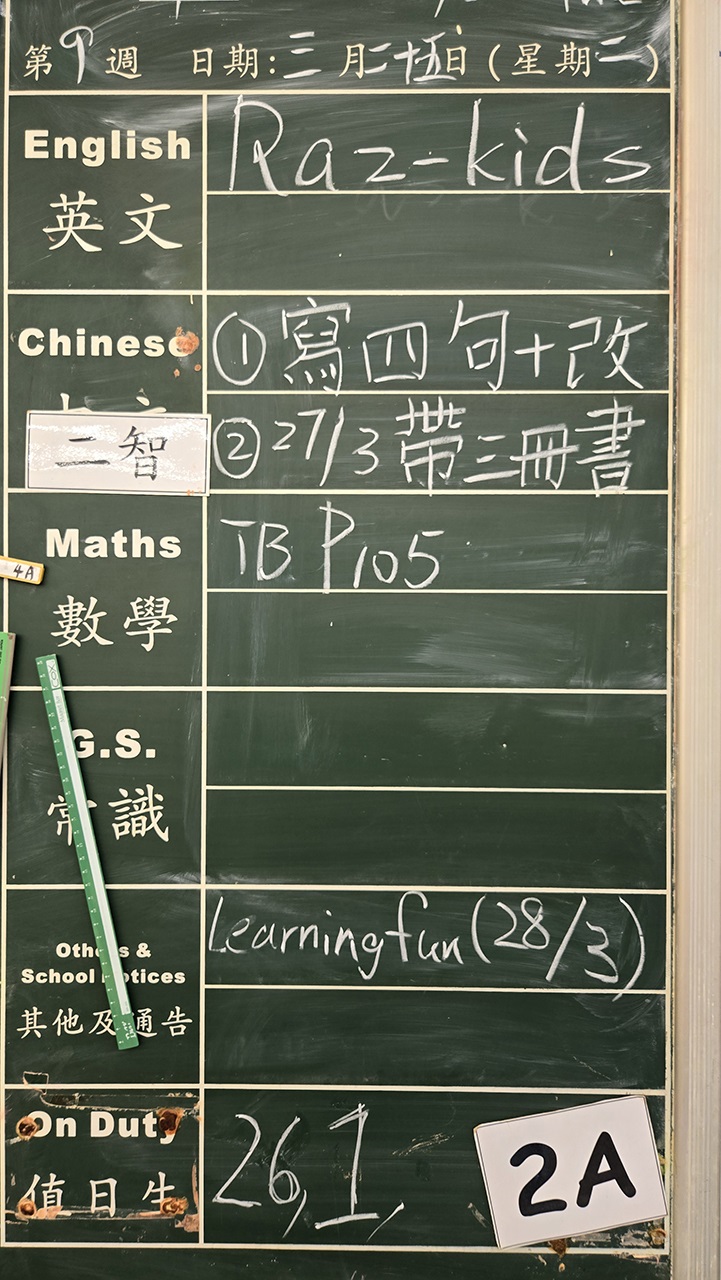 第9週 日期:三月二十五日(星期二)
English 英文
Raz-kids
Chinese
①寫四句+改
二智
②27/3帶三冊書
Maths 數學
TB P105
4A
G.S. 常識
Others & School Notices 其他及通告
Learning fun (28/3)
On Duty 值日生
26, 1,
2A